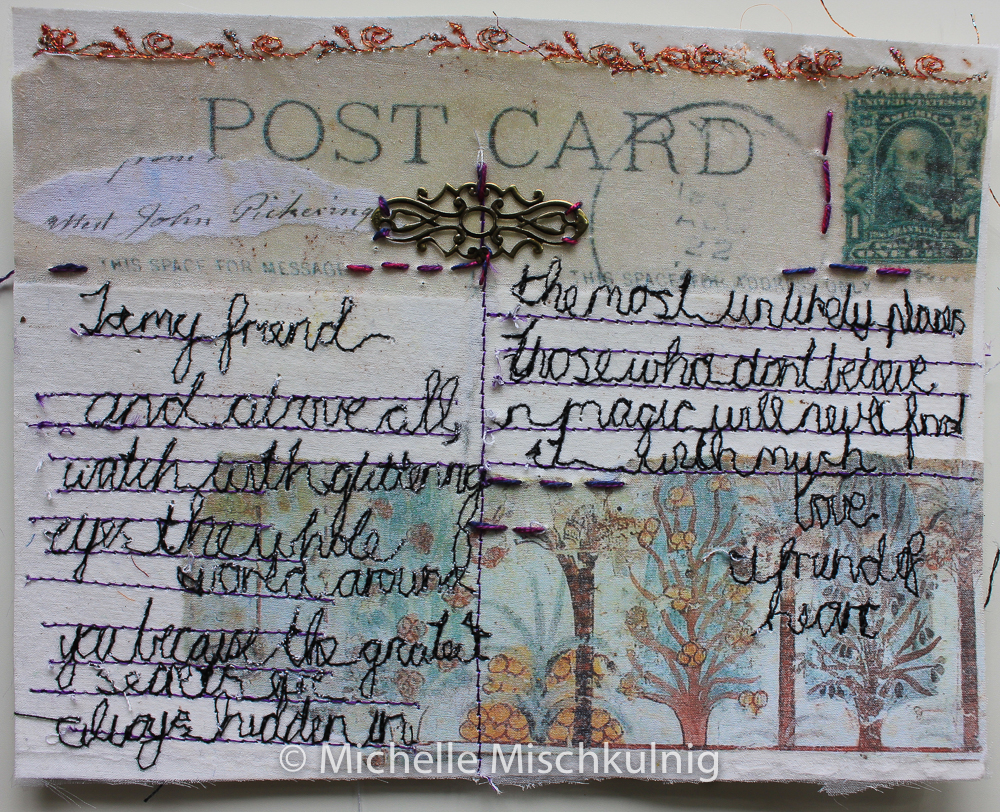 POST CARD
UNITED STATES OF
AMERICA
1 1
FRANKLIN
ONE CENT
attest John Pickering
THIS SPACE FOR MESSAGE
THIS SPACE FOR ADDRESS ONLY
22
To my friend
and above all,
watch with glittering
eyes the whole
world around
you because the greatest
secrets are
always hidden in
the most unlikely places
those who dont believe
in magic will never find
it with much
love
a friend of
heart
© Michelle Mischkulnig